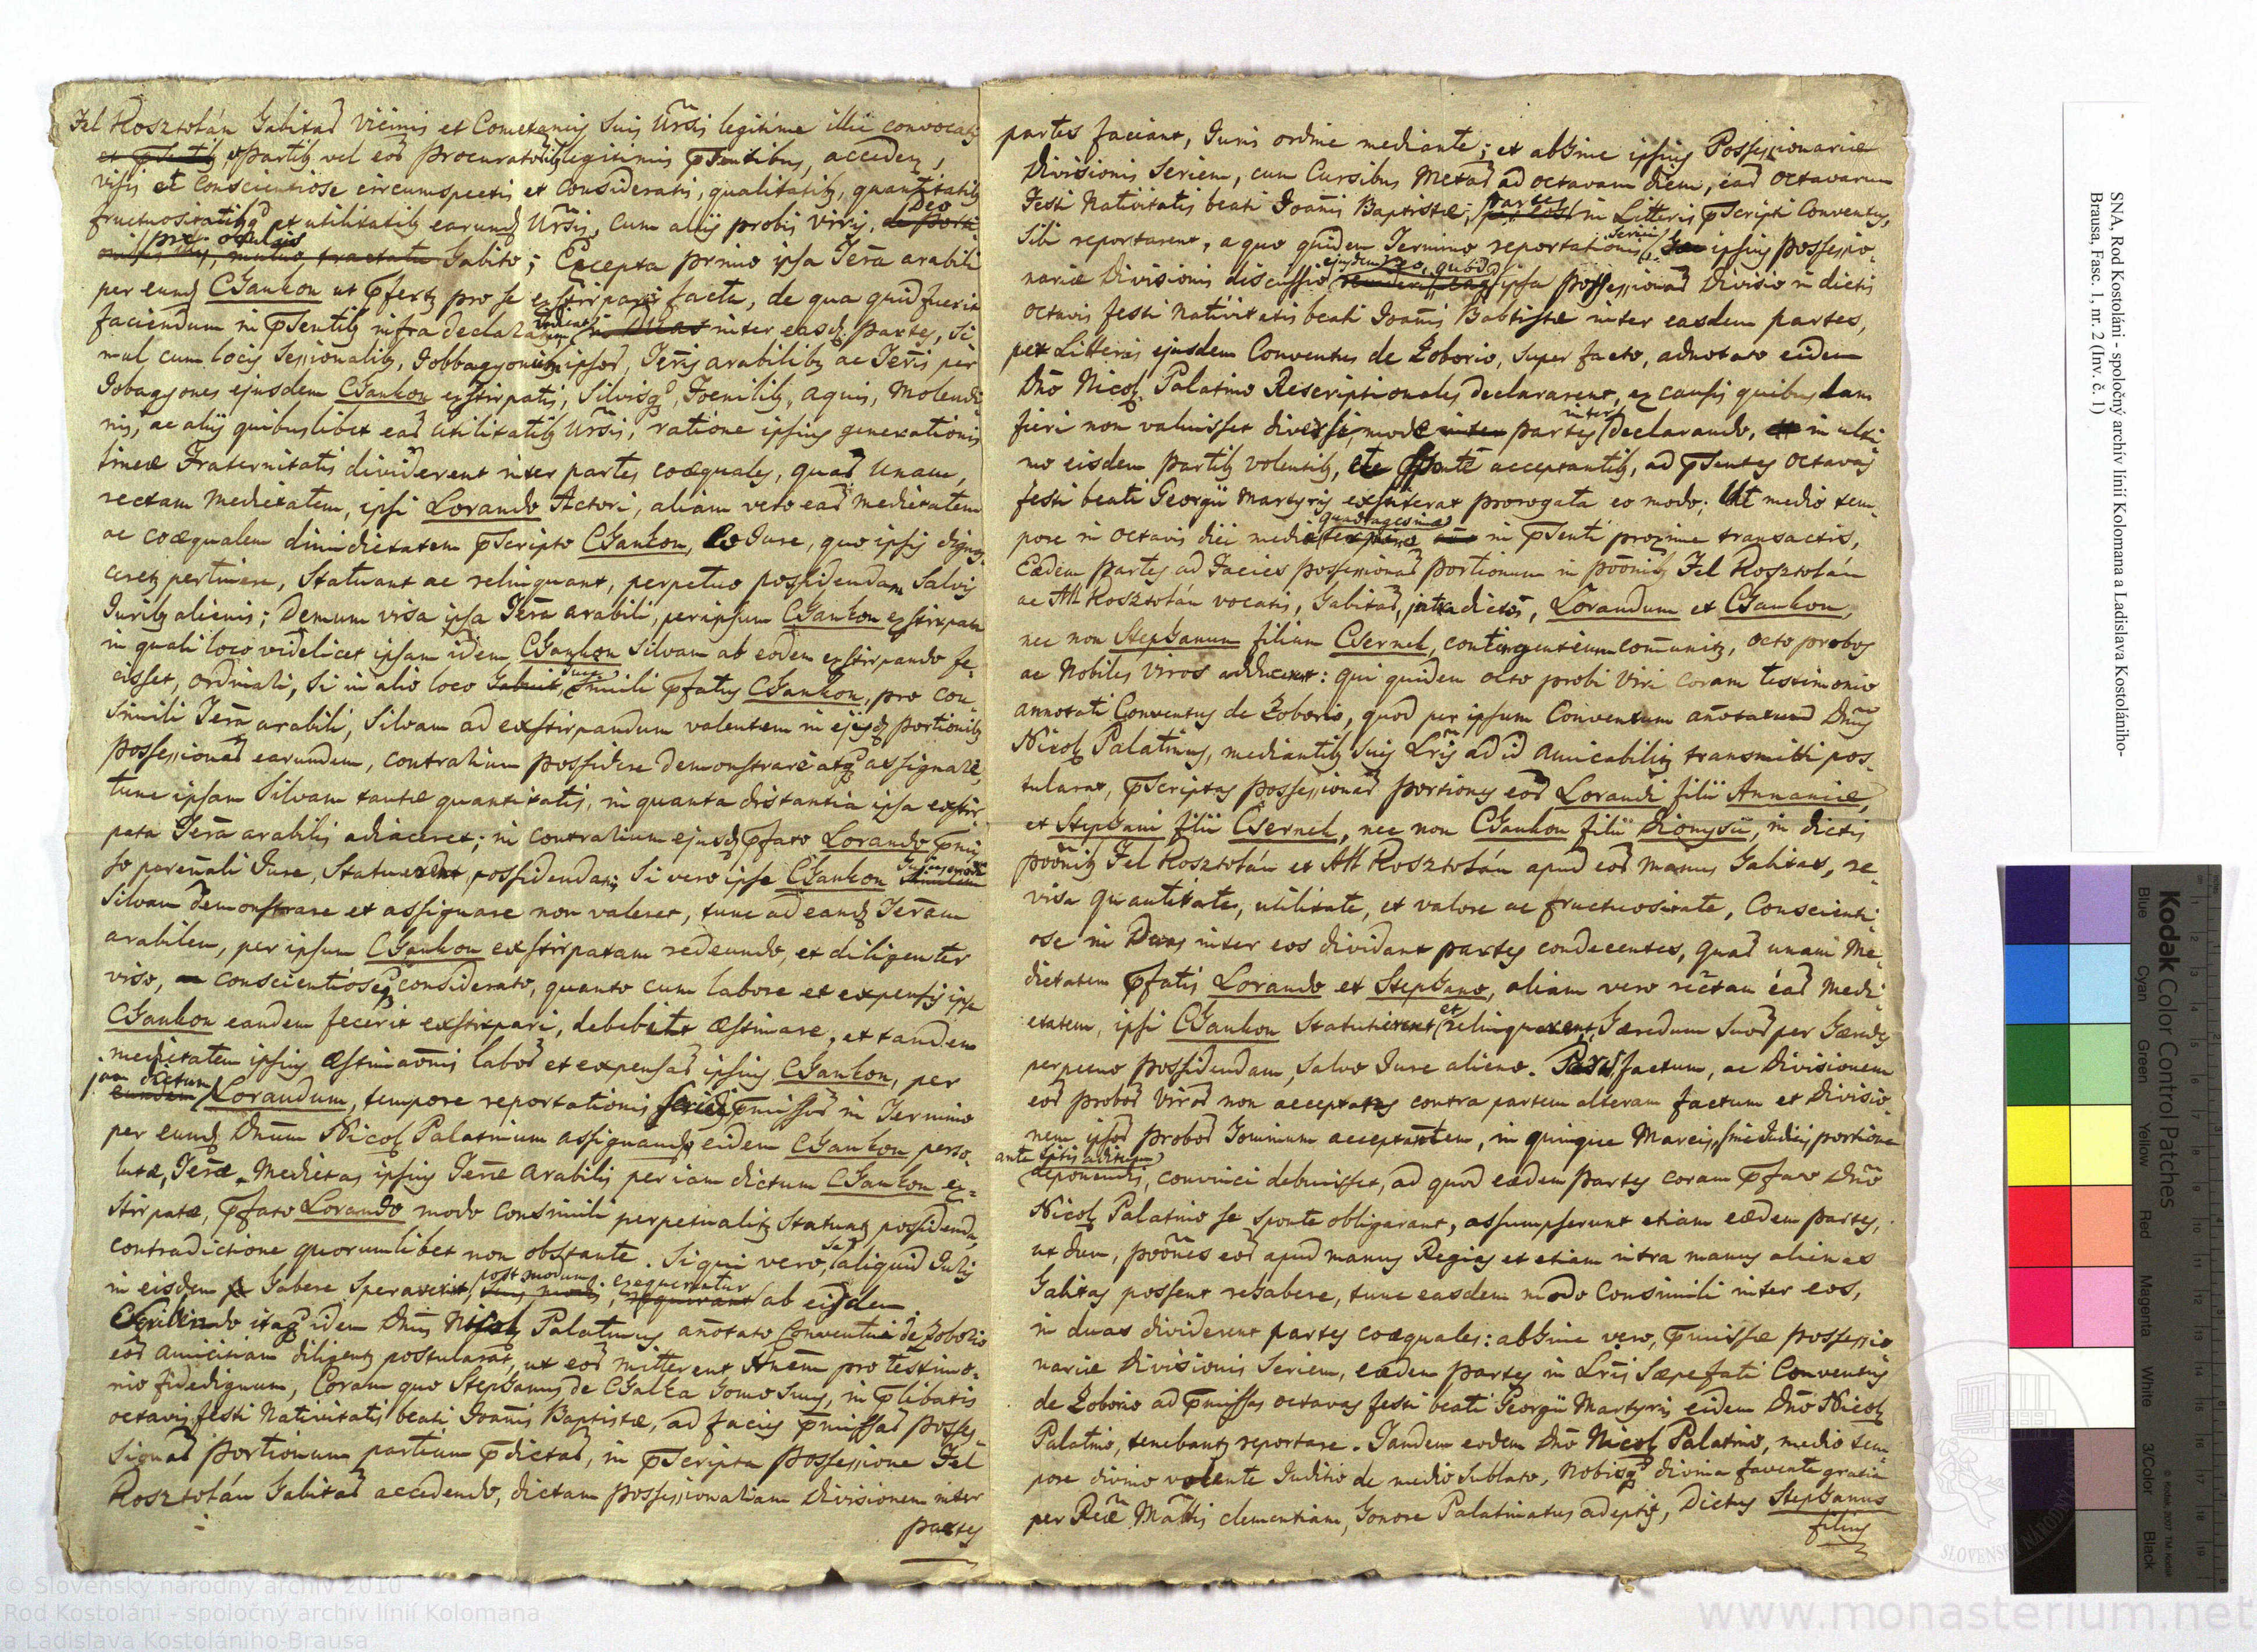 Fel Kosztolán habitas vicinis et Cometaneis suis Ursis legitime illic convocatis
et pSentib, Partib vel eoʀ Procuratorib legitimis pSentibus, acceden,
visis et conscientiose circumspectis et consideratis, qualitatib, quantitatib
fructuositatib et utilitatib earund Ursis, cum aliis probis viris, Deo
præ oculis habito; Excepta primo ipsa Terra arabili
per eund Chankon ut pfert pro se exstirpari facta, de qua quid fuerit
faciendum in pSentib infra declaratur inter easd partes, si
mul cum locis Sessionalib, Jobbagyonum ipsoʀ, Terris arabilib ac Terris per
Jobagyones ejusdem Chankon exstirpatis, Silvisq, Foenilib, aquis, Molendi
nis, ac aliis quibuslibet eaʀ utilitatib Ursis, ratione ipsius generationis
lineæ Fraternitatis dividerent inter partes coæquales, quaʀ unam,
rectam medietatem, ipsi Lorando Actori, aliam vero eaʀ medietatem
ac coæqualem dimidietatem pScripto Chankon, eo Jure, quo ipsis dignos
ceret pertinere, Statuant ac relinquant, perpetuo possidendam Salvis
Jurib alienis; Demum visa ipsa Terra arabili, per ipsum Chankon exstirpata
in quali loco videlicet ipsam idem Chankon Silvam ab eodem exstirpando fe
cisset, ordinali, Si in alio loco simili pfatus Chankon, pro con
simili Terra arabili, Silvam ad exstirpandum valentem in ejusd portionib
possessionaʀ earumdem, contralium possidere demonstrare atq assignare,
tunc ipsam Silvam tantæ quantitatis, in quanta distantia ipsa exstir
pata Terra arabilis adiaceret; in contralium ejusd pfato Lorando pmis
so perennali Jure, Statuerent possidendam; Si vero ipse Chankon hujusmodi
Silvam demonstrare et assignare non valeret, tunc ad eand Terram
arabilem, per ipsum Chankon exstirpatam redeundo, et diligenter
viso, conscientioseq considerato, quanto cum labore et expensis ipse
Chankon eandem fecerit exstirpari, debebent æstimare, et tandem
medietatem ipsius æstimaoni laboʀ et expensaʀ ipsius Chankon, per
jam dictum Lorandum, tempore reportationis seriei pmissoʀ in Termino
per eund Dnum Nicol Palatinum assignando eidem Chankon perso
lutæ, Terræ Medietas ipsius Terræ arabilis per iam dictum Chankon ex=
stirpatæ, pfato Lorando modo consimili perpetualit Statuat possidenda,
contradictione quorumlibet non obstante. Si qui vero, se aliquid Juris
in eisdem habere Speraverit, post modum exequerentur ab eisdem.
idem Dnus Nicol Palatinus anotato Conventui de Zoborio
eoʀ amicitiam diligent postularat, ut eoʀ mitterent hnem pro testimo=
nio fidedignum, Coram quo Stephanus de Chalka homo suus, in plibatis
octavis festi Nativitatis beati Joannis Baptistæ, ad facies pmissaʀ posses
sionaʀ portionum partium pdictaʀ, in pScripta possessione Fel
Kosztolán habitaʀ accedendo, dictam possessionariam divisionem inter
partes
partes faciant, Juris ordine mediante; et abhinc ipsius Possessionariæ
Divisionis Seriem, cum Cursibus Metaʀ ad octavam diem, eaʀ octavarum
Festi Nativitatis beati Joannis Baptistæ, partes in Litteris pScripti Conventus,
Sibi reportarent, a quo quidem Termino reportationis seriei ipsius possessio
nariæ Divisionis discussio ipsa possessionaʀ Divisio in dictis
octavis festi Nativitatis beati Joannis Babtistæ inter easdem partes,
pex Litteris ejusdem Conventus de Zoborio, super facto, adnotato eidem
Dno Nicol Palatino Rescriptionales declararent, ex causis quibusdam
fieri non valuisset diversimode inter partes declarando, in ulti
mo eisdem partib volentib, sponte acceptantib, ad pSentes octavas
festi beati Georgii Martyris exstiterat prorogata eo modo; Ut medio tem
pore in octavis diei mediæ quadragesimæ in pSenti proxime transactis,
Eædem partes ad Facies possessionaʀ portionum in possonib Fel Kosztolán
ac All Kosztolán vocatis, habitaʀ, jntradictos, Lorandum et Chankon,
nec non Stephanum filium Csernek, contingentium comunit, octo probos
ac Nobiles viros adducerent: qui quidem octo probi Viri coram testimonio
annotati Conventus de Zoborio, quod per ipsum Conventum anotatus Dnus
Nicol Palatinus, mediantib suis Lris ad id amicabilit transmitti pos
tularat, pScriptas possessionaʀ portiones eoʀ Lorandi filii Annaniæ,
et Stephani filii Csernek, nec non Chankon filii Dionysii, in dictis
possonib Fel Kosztolán et All Kosztolán apud eoʀ manus habitas, re
visa quantitate, utilitate, et valore ac fructuositate, Conscienti
ose in Duas inter eos dividant partes condecentes, quaʀ unam Me
dietatem pfatis Lorando et Stephano, aliam vero rectam eaʀ Medi
etatem, ipsi Chankon Statuerent et relinquerent, Hæredum suoʀ per Hæredes
perpetuo possidendam, Salvo Jure alieno. Pars, factum, ac Divisionem
eoʀ proboʀ Viroʀ non acceptans contra partem alteram factum et Divisio
nem ipsoʀ proboʀ hominum acceptantem, in quinque Marcis, sine Judicis portione
ante litis aditum deponendis, convinci debuisset, ad quod eædem partes coram pfato Dno
Nicol Palatino se sponte obligarant, assumpserunt etiam eædem partes,
ut dum, possones eoʀ apud manus Regias et etiam intra manus alienas
habitas possent rehabere, tunc easdem modo Consimili inter eos,
in duas dividerent partes coæquales: abhinc vero, pmissæ possessio
nariæ Divisionis Seriem, eædem partes in Lris Sæpefati Conventus
de Zoborio ad pmissas octavas festi beati Georgii Martyris eidem Dno Nicol
Palatino, tenebant reportare. Tandem eodem Dno Nicol Palatino, medio tem
pore divino volente Juditio de medio sublato, Nobisq divina favente gratia
per Reæ Mattis clementiam, honore Palatinatus adeptis, Dictus Stephanus
filius
SNA, Rod Kostoláni - spoločný archív línií Kolomana a Ladislava Kostolániho-
Brausa, Fasc. 1, nr. 2 (Inv. č. 1)
Kodak Color Control Patches
Blue Cyan Green Yellow Red Magenta White 3/Color Black
© Kodak, 2007 TM: Kodak
SLOVENSKÝ NÁRODNÝ
© Slovenský národný archív 2010
Rod Kostoláni - spoločný archív línií Kolomana
a Ladislava Kostolániho-Brausa
www.monasterium.net